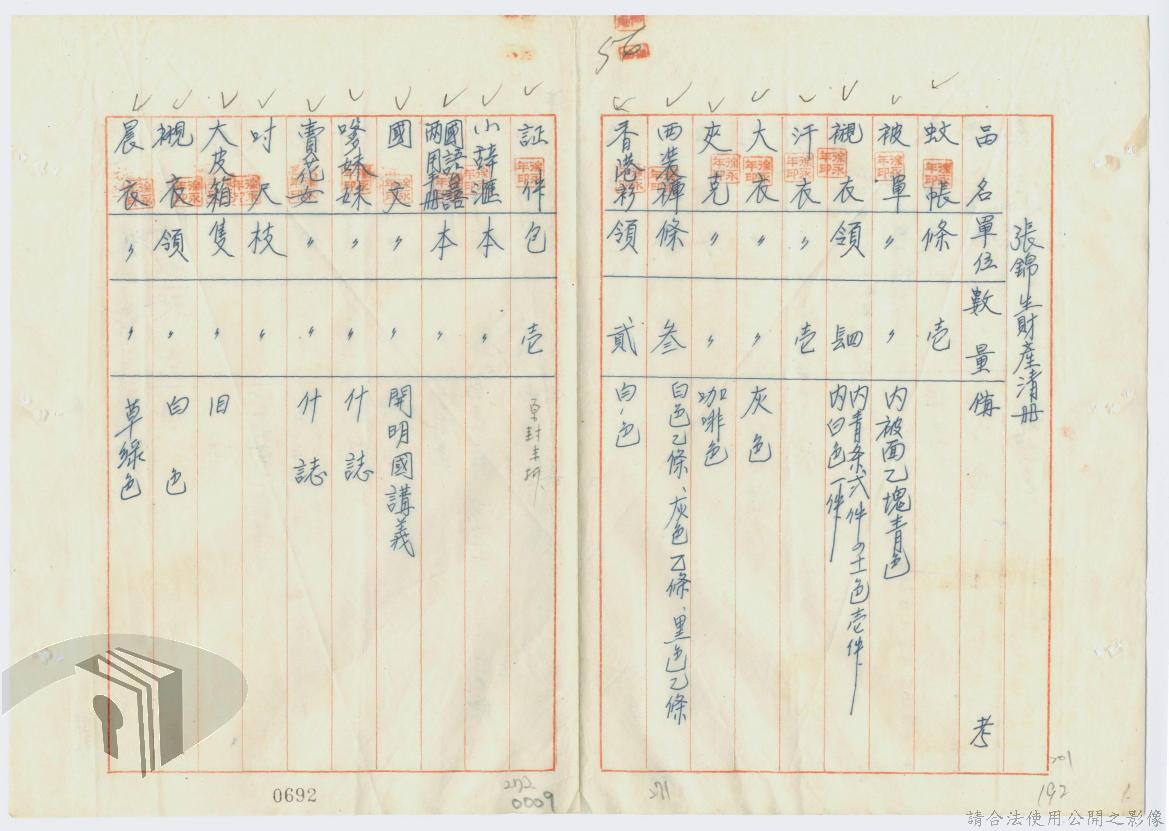 56
張錦生財產清册
品名 單位 數量 備考
蚊帳 條 壹
被單 〃 〃 內被面乙塊青色
襯衣 領 肆 內青条弍件の土色壹件 內白色一件
汗衣 〃 壹
大衣 〃 〃 灰色
夾克 〃 〃 咖啡色
西裝褲 條 叁 白色乙條、灰色乙條、黑色乙條
香港衫 領 貳 白色
証件 包 壹 原封未拆
小辞滙 本 〃
國語 兩用手册 本 〃
國文 〃 〃 開明國講義
嗲妹妹 〃 〃 什誌
賣花女 〃 〃 什誌
吋尺 枝 〃
大皮箱 隻 〃 旧
襯衣 領 〃 白色
晨衣 〃 〃 草綠色
201
192
271
272
0009
0692
請合法使用公開之影像